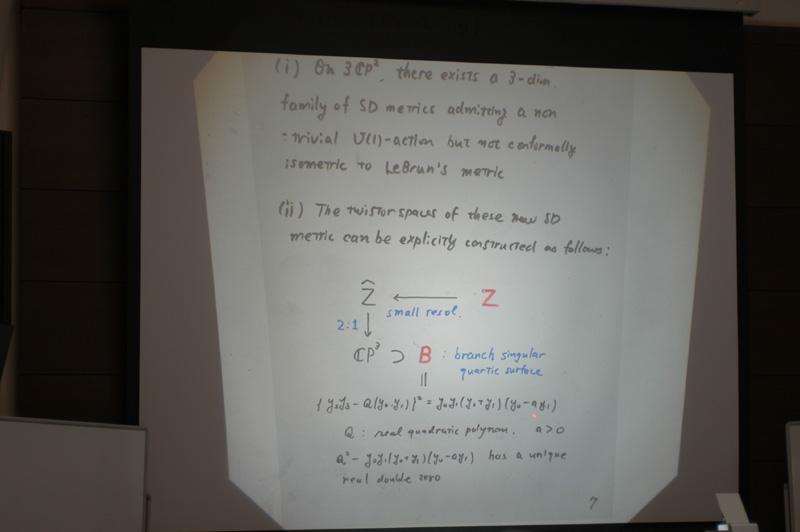 (i) On 3ℂP², there exists a 3-dim.
family of SD metrics admitting a non
-trivial U(1)-action but not conformally
isometric to LeBrun's metric
(ii) The twistor spaces of these new SD
metric can be explicitly constructed as follows:
Ẑ ← Z
small resol.
2:1 ↓
ℂP³ ⊃ B : branch singular
quartic surface
||
{y₂y₃ - Q(y₀,y₁)}² = y₀y₁(y₀+y₁)(y₀-ay₁)
Q : real quadratic polynom. a>0
Q² - y₀y₁(y₀+y₁)(y₀-ay₁) has a unique
real double zero
7